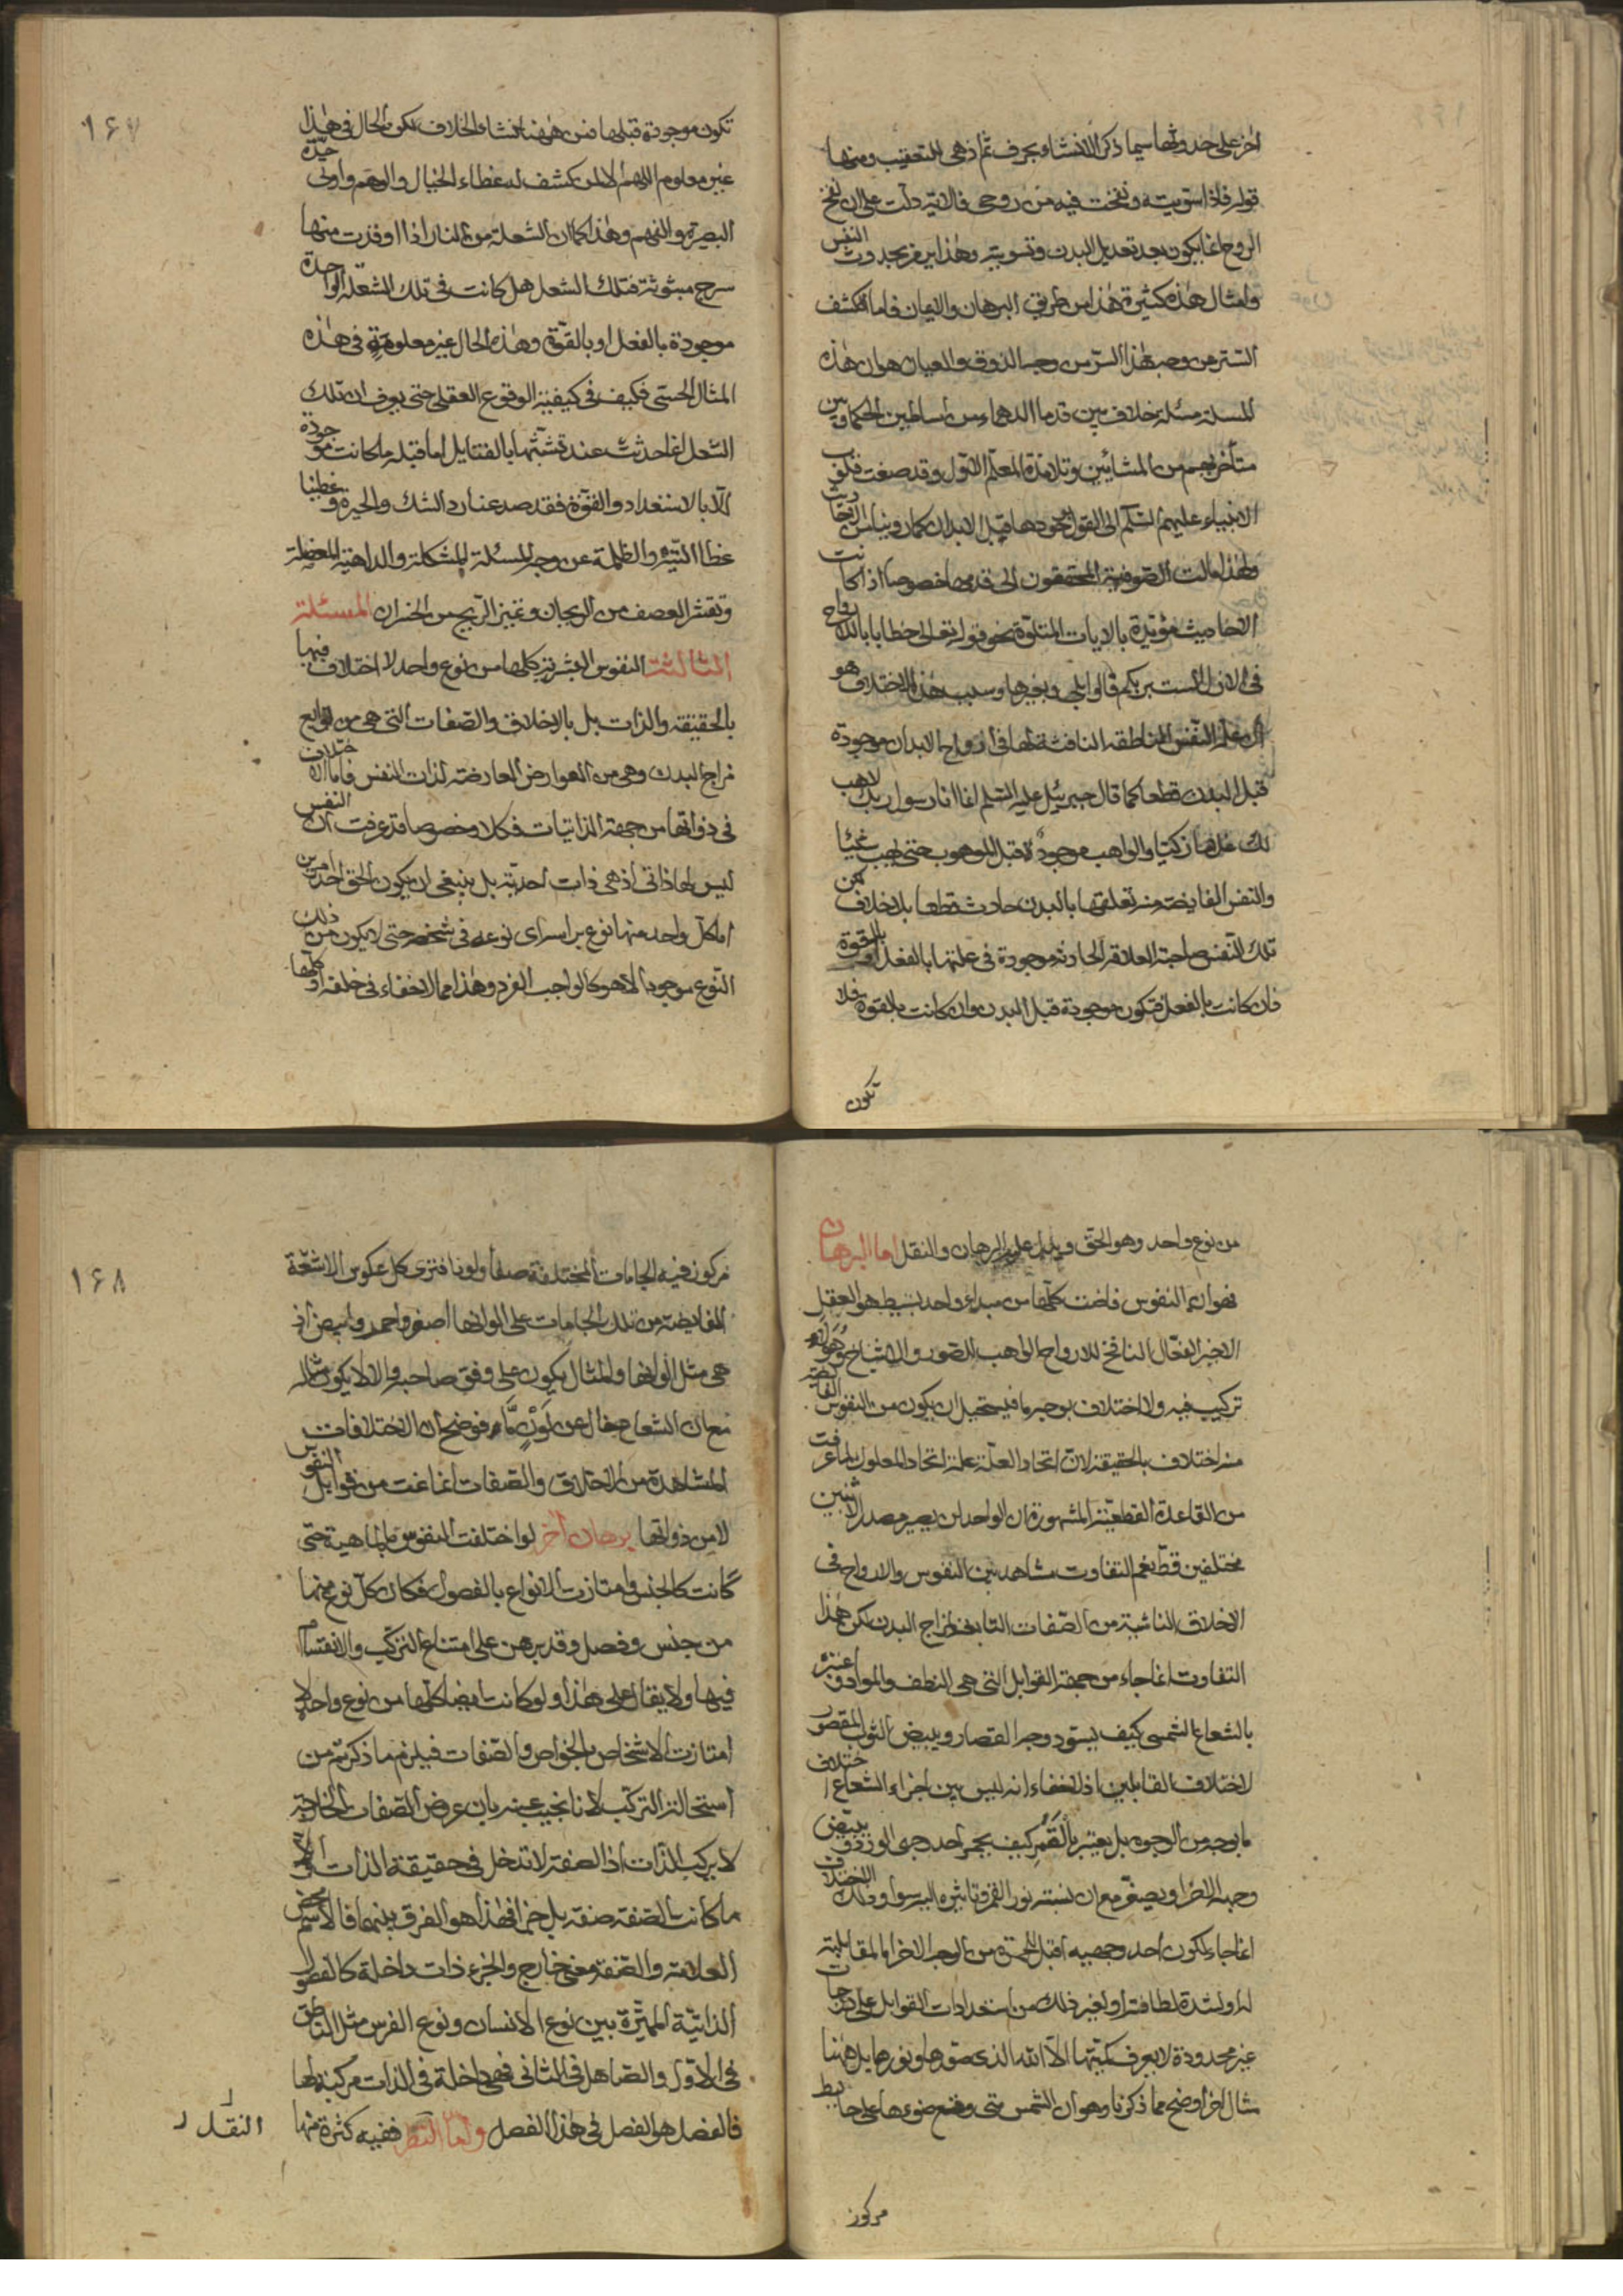 اخر على حدوثها سيما ذكر الانشاء بحرف ثم اذ هى للتعقيب ومنها
قوله فاذا سويته ونفخت فيه من روحى فالاية دلت على ان نفخ
الروح انما يكون بعد تعديل البدن وتسويته وهذا يعزم بحدوث النفس
وامثال هذه كثيرة هذا من طريق البرهان والايمان فاما الكشف
الستر من وجه هذا السر من وجه الذوق والعيان هو ان هذه
المسئلة مسئلة خلاف بين قدماء الدهماء من اساطين الحكما وبين
متأخريهم من المشائين وتلامذة المعلم الاول وقد صغت قلوب
الانبياء عليهم السلم الى القول بوجودها قبل الابدان كما روينا من الاحاديث
ولهذا مالت الصوفية المحققون الى قدمها خصوصا اذا كانت
الاحاديث مؤيدة بالايات المتلوة نحو قوله تعالى خطابا بالارواح
فى الازل الست بربكم قالوا بلى وبغيرها وسبب هذا الاختلاف هو
ان علة النفس الناطقة النافثة لها فى ارواح الابدان موجودة
قبل البدن قطعا كما قال جبرئيل عليه السلم انما انا رسول ربك لاهب
لك غلاما زكيا والواهب موجود قبل الموهوب حتى يهب شيئا
والنفس الفايضة منه تعلقها بالبدن حادث قطعا بلا خلاف لكن
تلك النفس صاحبة العلاقة الحادثة موجودة فى علتها بالفعل او بالقوة
فان كانت بالفعل فتكون موجودة قبل البدن وان كانت بالقوة فلا
تكون
١٦٧
تكون موجودة قبلها فمن ههنا انشاء الخلاف لكن الحال فى هذا
غير معلوم اللهم الا لمن كشف له غطاء الخيال والوهم واولى حيده
البصيرة والفهم وهذا كما ان الشعلة من النار اذا اوقدت منها
سرج مبثوثة فتلك الشعل هل كانت فى تلك الشعلة الواحدة
موجودة بالفعل او بالقوة وهذه الحال غير معلومة فى هذه
المثال الحسى فكيف فى كيفية الوقوع العقلى حتى يعرف ان تلك
الشعل انما حدثت عند تشبثها بالفتايل اما قبله ما كانت موجودة
الا بالاستعداد والقوة فقد صد عنا رد الشك والحيرة و غطينا
غطاء التيه والظلمة عن وجه المسئلة المشكلة والداهية المعضلة
وتقشر العصف من الريحان وتميز الربح من الخسران المسئلة
الثالثة النفوس البشرية كلها من نوع واحد لا اختلاف فيها
بالحقيقة والذات بل بالاخلاق والصفات التى هى من توابع
مزاج البدن وهى من العوارض العارضة لذات النفس فاما الاختلاف
فى ذواتها من جهة الذاتيات فكلا وخصوصا قد عرفت ان النفس
ليس لها ذاتى اذ هى ذات احدية بل ينبغى ان يكون الحق احد امرين
اما كل واحد منها نوع براسه اى نوعه فى شخصه حتى لا يكون من ذلك
النوع موجودا الا هو كالواجب الفرد وهذا مما لا خفاء فى خلفه او كلها
من نوع واحد وهو الحق ويدل عليه البرهان والنقل اما البرهان
فهو ان النفوس فاضت كلها من مبداء واحد بسيط هو العقل
الاخير الفعال النافخ للارواح الواهب للصور والاشباح وهو لا
تركيب فيه ولا اختلاف بوجه ما فيستحيل ان يكون من النفوس الفايضة
منه اختلاف بالحقيقة لان اتحاد العلة علة اتحاد المعلول لما عرفت
من القاعدة القطعية المشهورة ان الواحد لن يصير مصدر الاثنين
مختلفين قط نعم التفاوت مشاهد بين النفوس والارواح فى
الاخلاق الناشية من الصفات التابعة لمزاج البدن لكن هذا
التفاوت انما جاء من جهة القوابل التى هى النطف والمواد واعتبره
بالشعاع الشمسى كيف يسود وجه القصار ويبيض الثوب المقصور
لاختلاف القابلين اذ لا خفاء انه ليس بين اجزاء الشعاع اختلاف
ما بوجه من الوجوه بل يعتبر بالقمر كيف يحمر احد وجهى الورد ويبيض
وجهه الاخر او يصفر مع ان نسبة نور القمر وتاثيره اليه سواء وذلك الاختلاف
انما جاء لكون احد وجهيه اقبل للحمرة من الوجه الاخر اما لمقابلته
له او لشدة لطافته او لغير ذلك من استعدادات القوابل على درجات
غير محدودة لا يعرف كميتها الا الله الذى صورها ونورها بل ههنا
مثال اخر اوضح مما ذكرنا وهو ان الشمس متى وقع ضوءها على حايط
مركوز
١٦٨
مركوز فيه الجامات المختلفة صفا ولونا فترى كل عكوس الاشعة
الفايضة من تلك الجامات على الوانها اصفر واحمر وابيض اذ
هى مثل الوانها والمثال يكون على وفق صاحبه والا لا يكون مثاله
مع ان الشعاع خال عن لون ما فوضح ان الاختلافات
المشاهدة من الاخلاق والصفات انما نمت من قوابل النفوس
لا من ذواتها برهان اخر لو اختلفت النفوس بالماهية حتى
كانت كالجنس وامتازت الانواع بالفصول فكان كل نوع منها
من جنس وفصل وقد برهن على امتناع التركب والانقسام
فيها ولا يقال على هذا ولو كانت ايضا كلها من نوع واحد لا
امتازت الاشخاص بالخواص والصفات فيلزم ما ذكرتم من
استحالة التركب لانا نجيب عنه بان عروض الصفات الخارجية
لا يركب الذات اذ الصفة لا تدخل فى حقيقة الذات والا
ما كانت الصفة صفة بل جزءا فهذا هو الفرق بينهما فالاسم
العلامة والصفة معنى خارج والجزء ذات داخلة كالفصول
الذاتية المميزة بين نوع الانسان ونوع الفرس مثل الناطق
فى الاول والصاهل فى الثانى فهى داخلة فى الذات مركبة لها
فالفصل هو الفصل فى هذا الفصل واما النظر ففيه كثرة منها
النقل